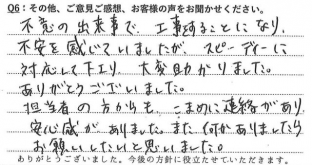 Q6：その他、ご意見ご感想、お客様の声をお聞かせください。
不意の出来事で、工事することになり、
不安を感じていましたが、スピーディーに
対応して下さり、大変助かりました。
ありがとうございました。
担当者の方からも、こまめに連絡があり
安心感がありました。また何かありましたら
お願いしたいと思いました。
ありがとうございました。今後の方針に役立たせていただきます。